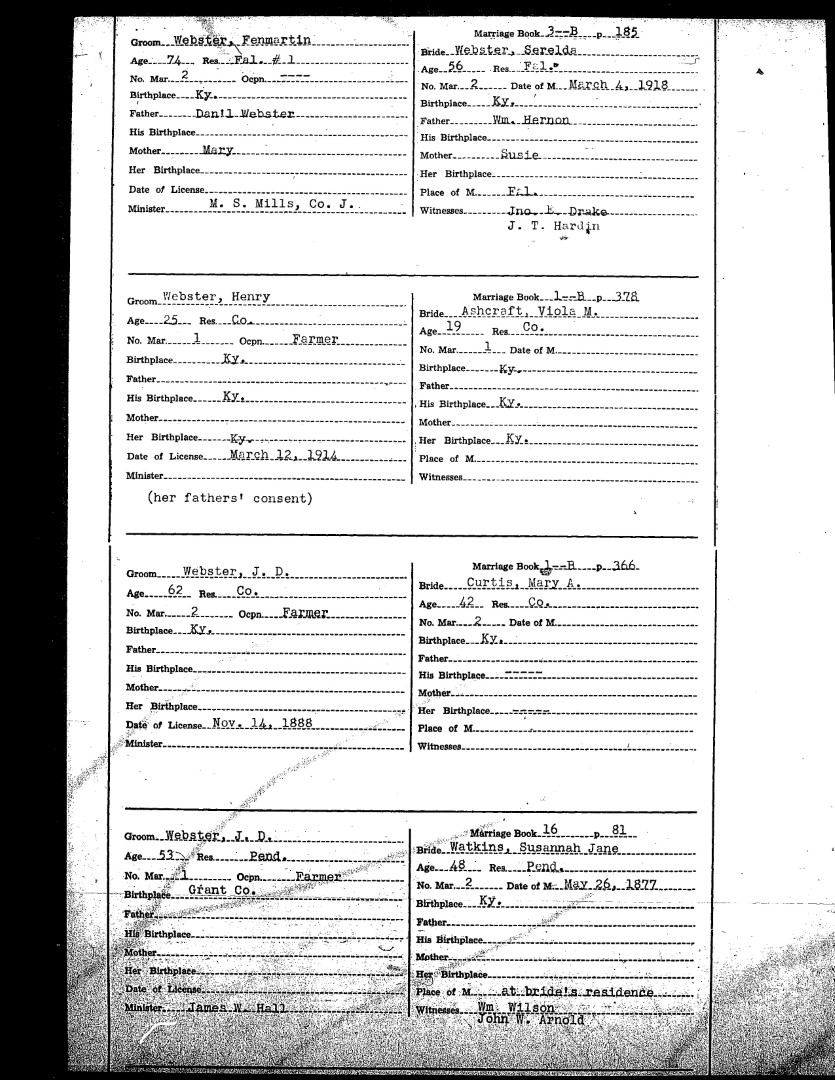 Groom Webster, Fenmartin
Age 74 Res Fal. # 1
No. Mar. 2 Ocpn. ----
Birthplace Ky.
Father Dan'l Webster
His Birthplace
Mother Mary
Her Birthplace
Date of License
Minister M. S. Mills, Co. J.
Marriage Book 3--B p 185
Bride Webster, Serelda
Age 56 Res Fal.
No. Mar. 2 Date of M. March 4, 1918
Birthplace Ky.
Father Wm. Hernon
His Birthplace
Mother Susie
Her Birthplace
Place of M. Fal.
Witnesses Jno. E. Drake
J. T. Hardin
Groom Webster, Henry
Age 25 Res Co.
No. Mar. 1 Ocpn. Farmer
Birthplace Ky.
Father
His Birthplace Ky.
Mother
Her Birthplace Ky.
Date of License March 12, 1914
Minister
(her fathers' consent)
Marriage Book 1--B p 378
Bride Ashcraft, Viola M.
Age 19 Res Co.
No. Mar. 1 Date of M.
Birthplace Ky.
Father
His Birthplace Ky.
Mother
Her Birthplace Ky.
Place of M.
Witnesses
Groom Webster, J. D.
Age 62 Res Co.
No. Mar. 2 Ocpn. Farmer
Birthplace Ky.
Father
His Birthplace
Mother
Her Birthplace
Date of License Nov. 14, 1888
Minister
Marriage Book 1--B p 366
Bride Curtis, Mary A.
Age 42 Res Co.
No. Mar. 2 Date of M.
Birthplace Ky.
Father
His Birthplace -----
Mother
Her Birthplace -----
Place of M.
Witnesses
Groom Webster, J. D.
Age 53 Res Pend.
No. Mar. 1 Ocpn. Farmer
Birthplace Grant Co.
Father
His Birthplace
Mother
Her Birthplace
Date of License
Minister James W. Hall
Marriage Book 16 p 81
Bride Watkins, Susannah Jane
Age 48 Res Pend.
No. Mar. 2 Date of M. May 26, 1877
Birthplace Ky.
Father
His Birthplace
Mother
Her Birthplace
Place of M. at bride's residence
Witnesses Wm. Wilson
John W. Arnold